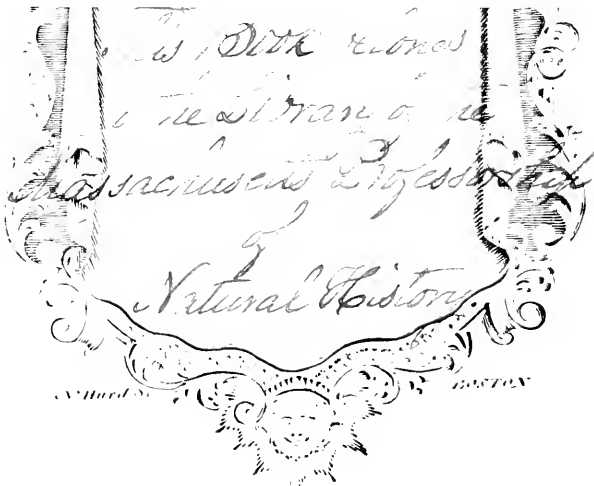 This Book belongs
to the Library of the
Massachusetts Professorship
of
Natural History
N. Hurd Sc. BOSTON